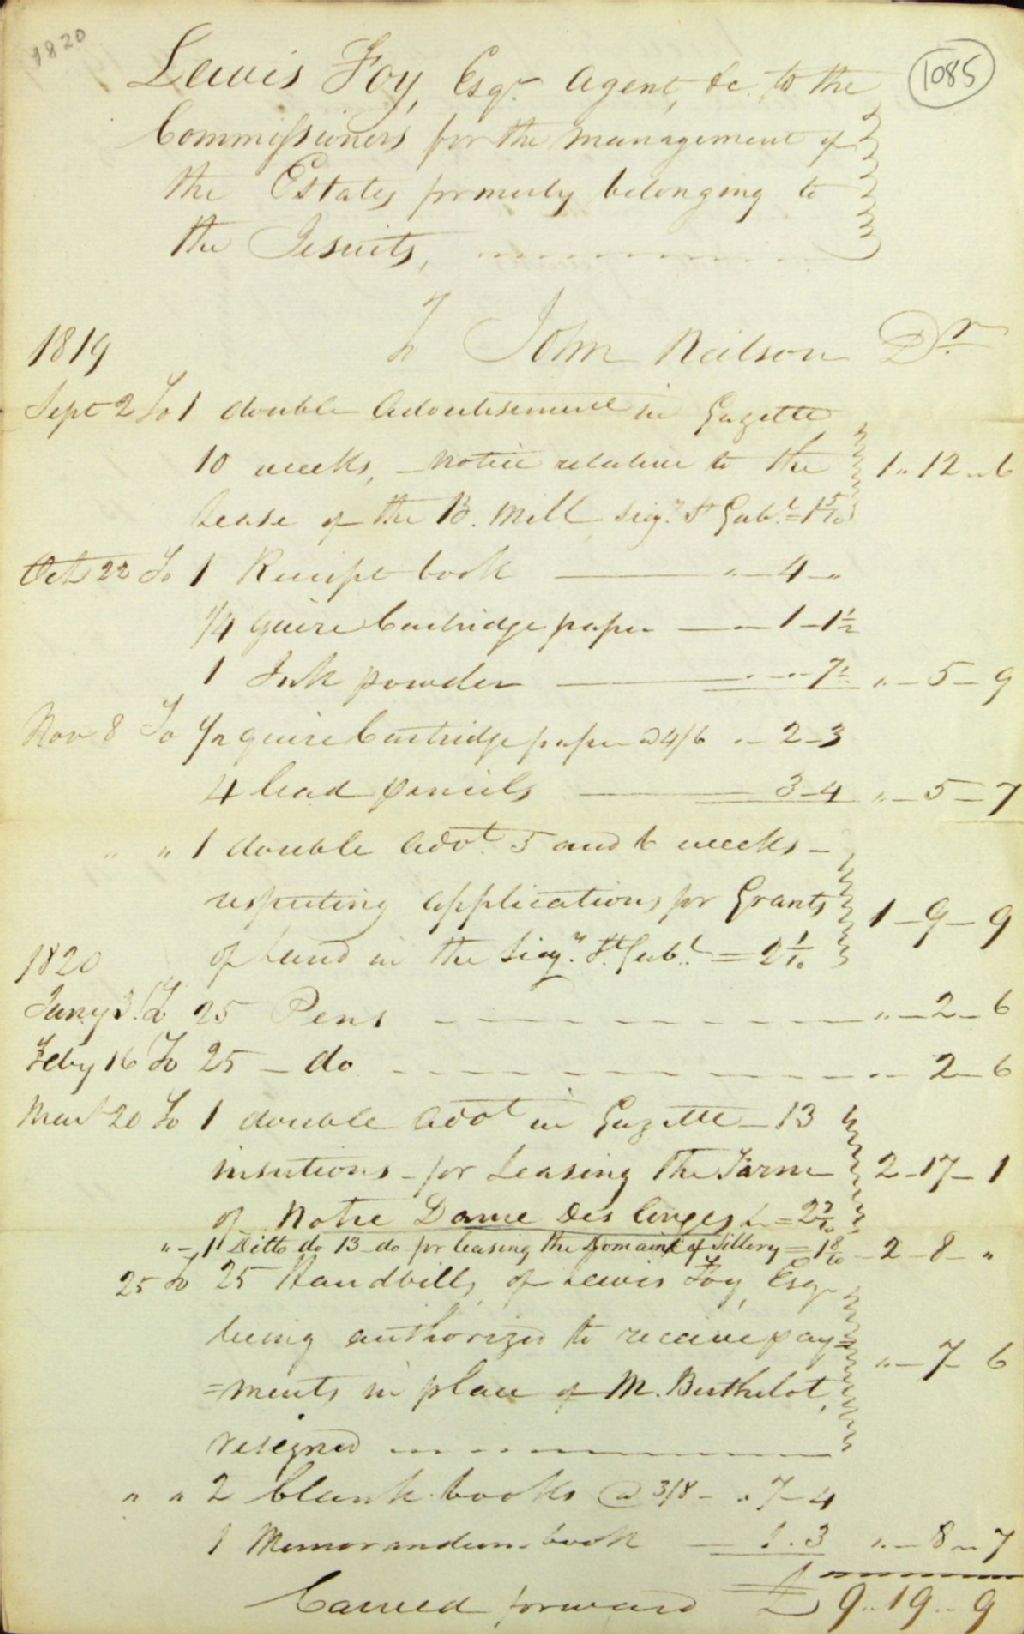 1820
1085
Lewis Foy, Esqr Agent, &c. to the
Commissioners for the management of
the Estates formerly belonging to
the Jesuits,
1819 To John Neilson Dr.
Sept 2 To 1 double advertisement in Gazette
10 weeks, notice relative to the 1 " 12 " 6
Lease of the B. Mill Sigy. St Gabl. =
Oct 22 To 1 Receipt book " 4 "
1/4 quire Cartridge paper 1 - 1 1/2
1 Ink powder 7 1/2 " - 5 - 9
Nov 8 To 1/2 quire Cartridge paper @ 4/6 " 2 - 3
4 lead pencils 3 - 4 " - 5 - 7
" " 1 double Advt. 5 and 6 weeks -
respecting applications for Grants 1 - 9 - 9
of land in the Sigy. St. Gabl. = 2 1/10
1820
Jany 31 To 25 Pens " - 2 - 6
Feby 16 To 25 - do " 2 - 6
Mar 20 To 1 double Advt in Gazette - 13
insertions - for Leasing the Farm 2 - 17 - 1
of Notre Dame Des Anges
" - " 1 Ditto do 13 do for leasing the Domaine of Sillery = 2 - 8 - "
25 To 25 Handbills, of Lewis Foy, Esqr
being authorized to receive pay= " - 7 - 6
=ments in place of M. Berthelot,
resigned
" " 2 blank books @ 3/8 - " 7 - 4
1 Memorandum book 1 . 3 " - 8 - 7
Carried forward £ 9 " 19 " 9